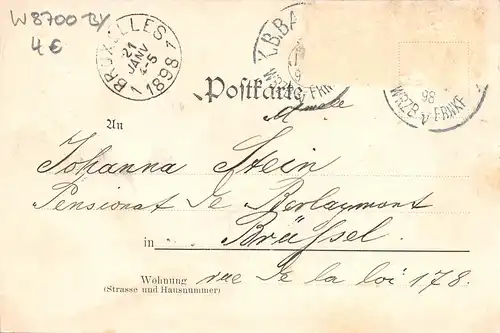 W8700-By
4 €
BRUXELLES 1
21
JANV
4-5
1898
K.B.BA
WRZB. FRNK
98
WRZB. v FRNKF
Postkarte
An
Johanna Stein
Pensionat de Berlaymont
in Brüssel.
Wohnung rue de la loi 178.
(Strasse und Hausnummer)